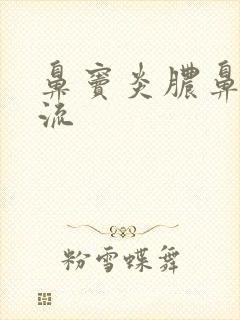 鼻窦炎脓鼻
流
粉雪蝶舞